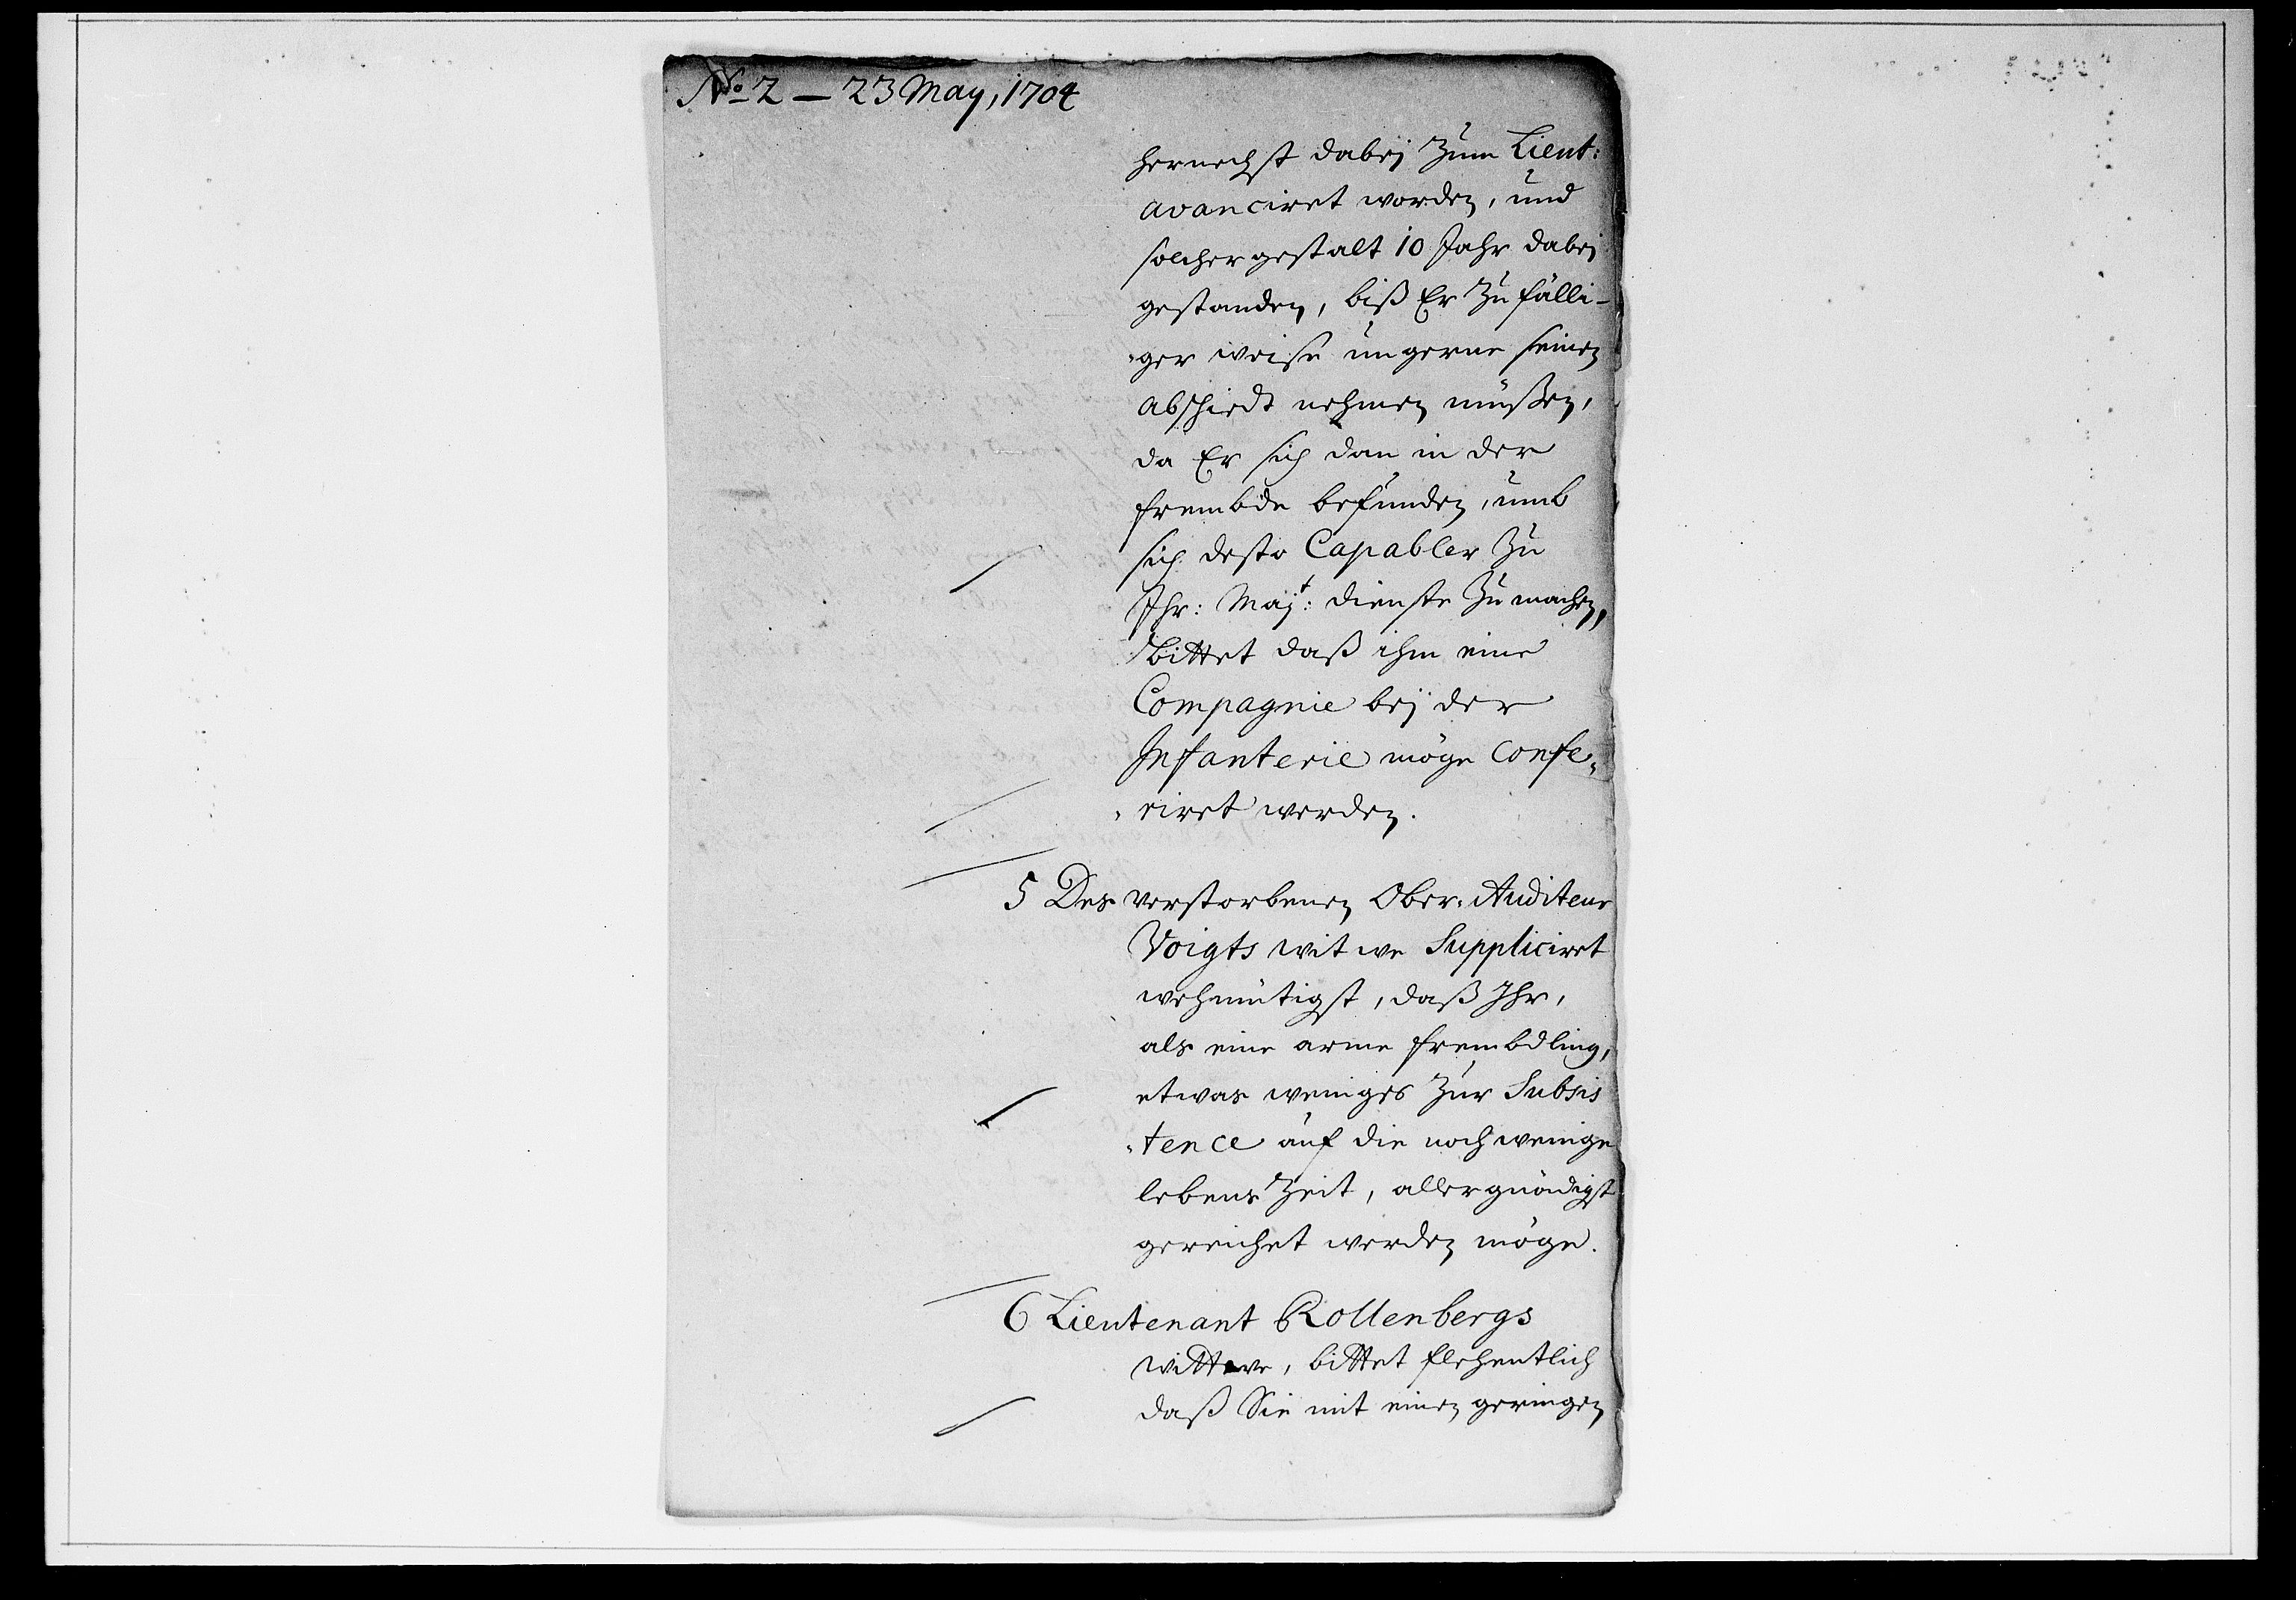 No 2 — 23 May, 1704
hernechst dabeÿ zum Lieut:
avanciret worden, und
solchergestalt 10 Jahr dabeÿ
gestanden, biß Er Zufälli-
ger weise ungerne seinen
abschiedt nehmen müßen,
da Er sich dan in der
frembde befunden, umb
sich desto Capabler zu
Ihr: Maÿt: dienste zu machen,
bittet daß ihm eine
Compagnie beÿ der
Infanterie möge confe,
riret werden.
5 Des verstorbenen Ober-Auditeur
Voigts witwe Suppliciret
wehmütigst, daß Ihr,
als eine arme frembdling,
etwas weniges zur Subsis
tence auf die noch wenige
lebens Zeit, allergnädigst
gereichet werden möge.
6 Lieutenant Rollenbergs
wittwe, bittet flehentlich
daß Sie mit einen geringen